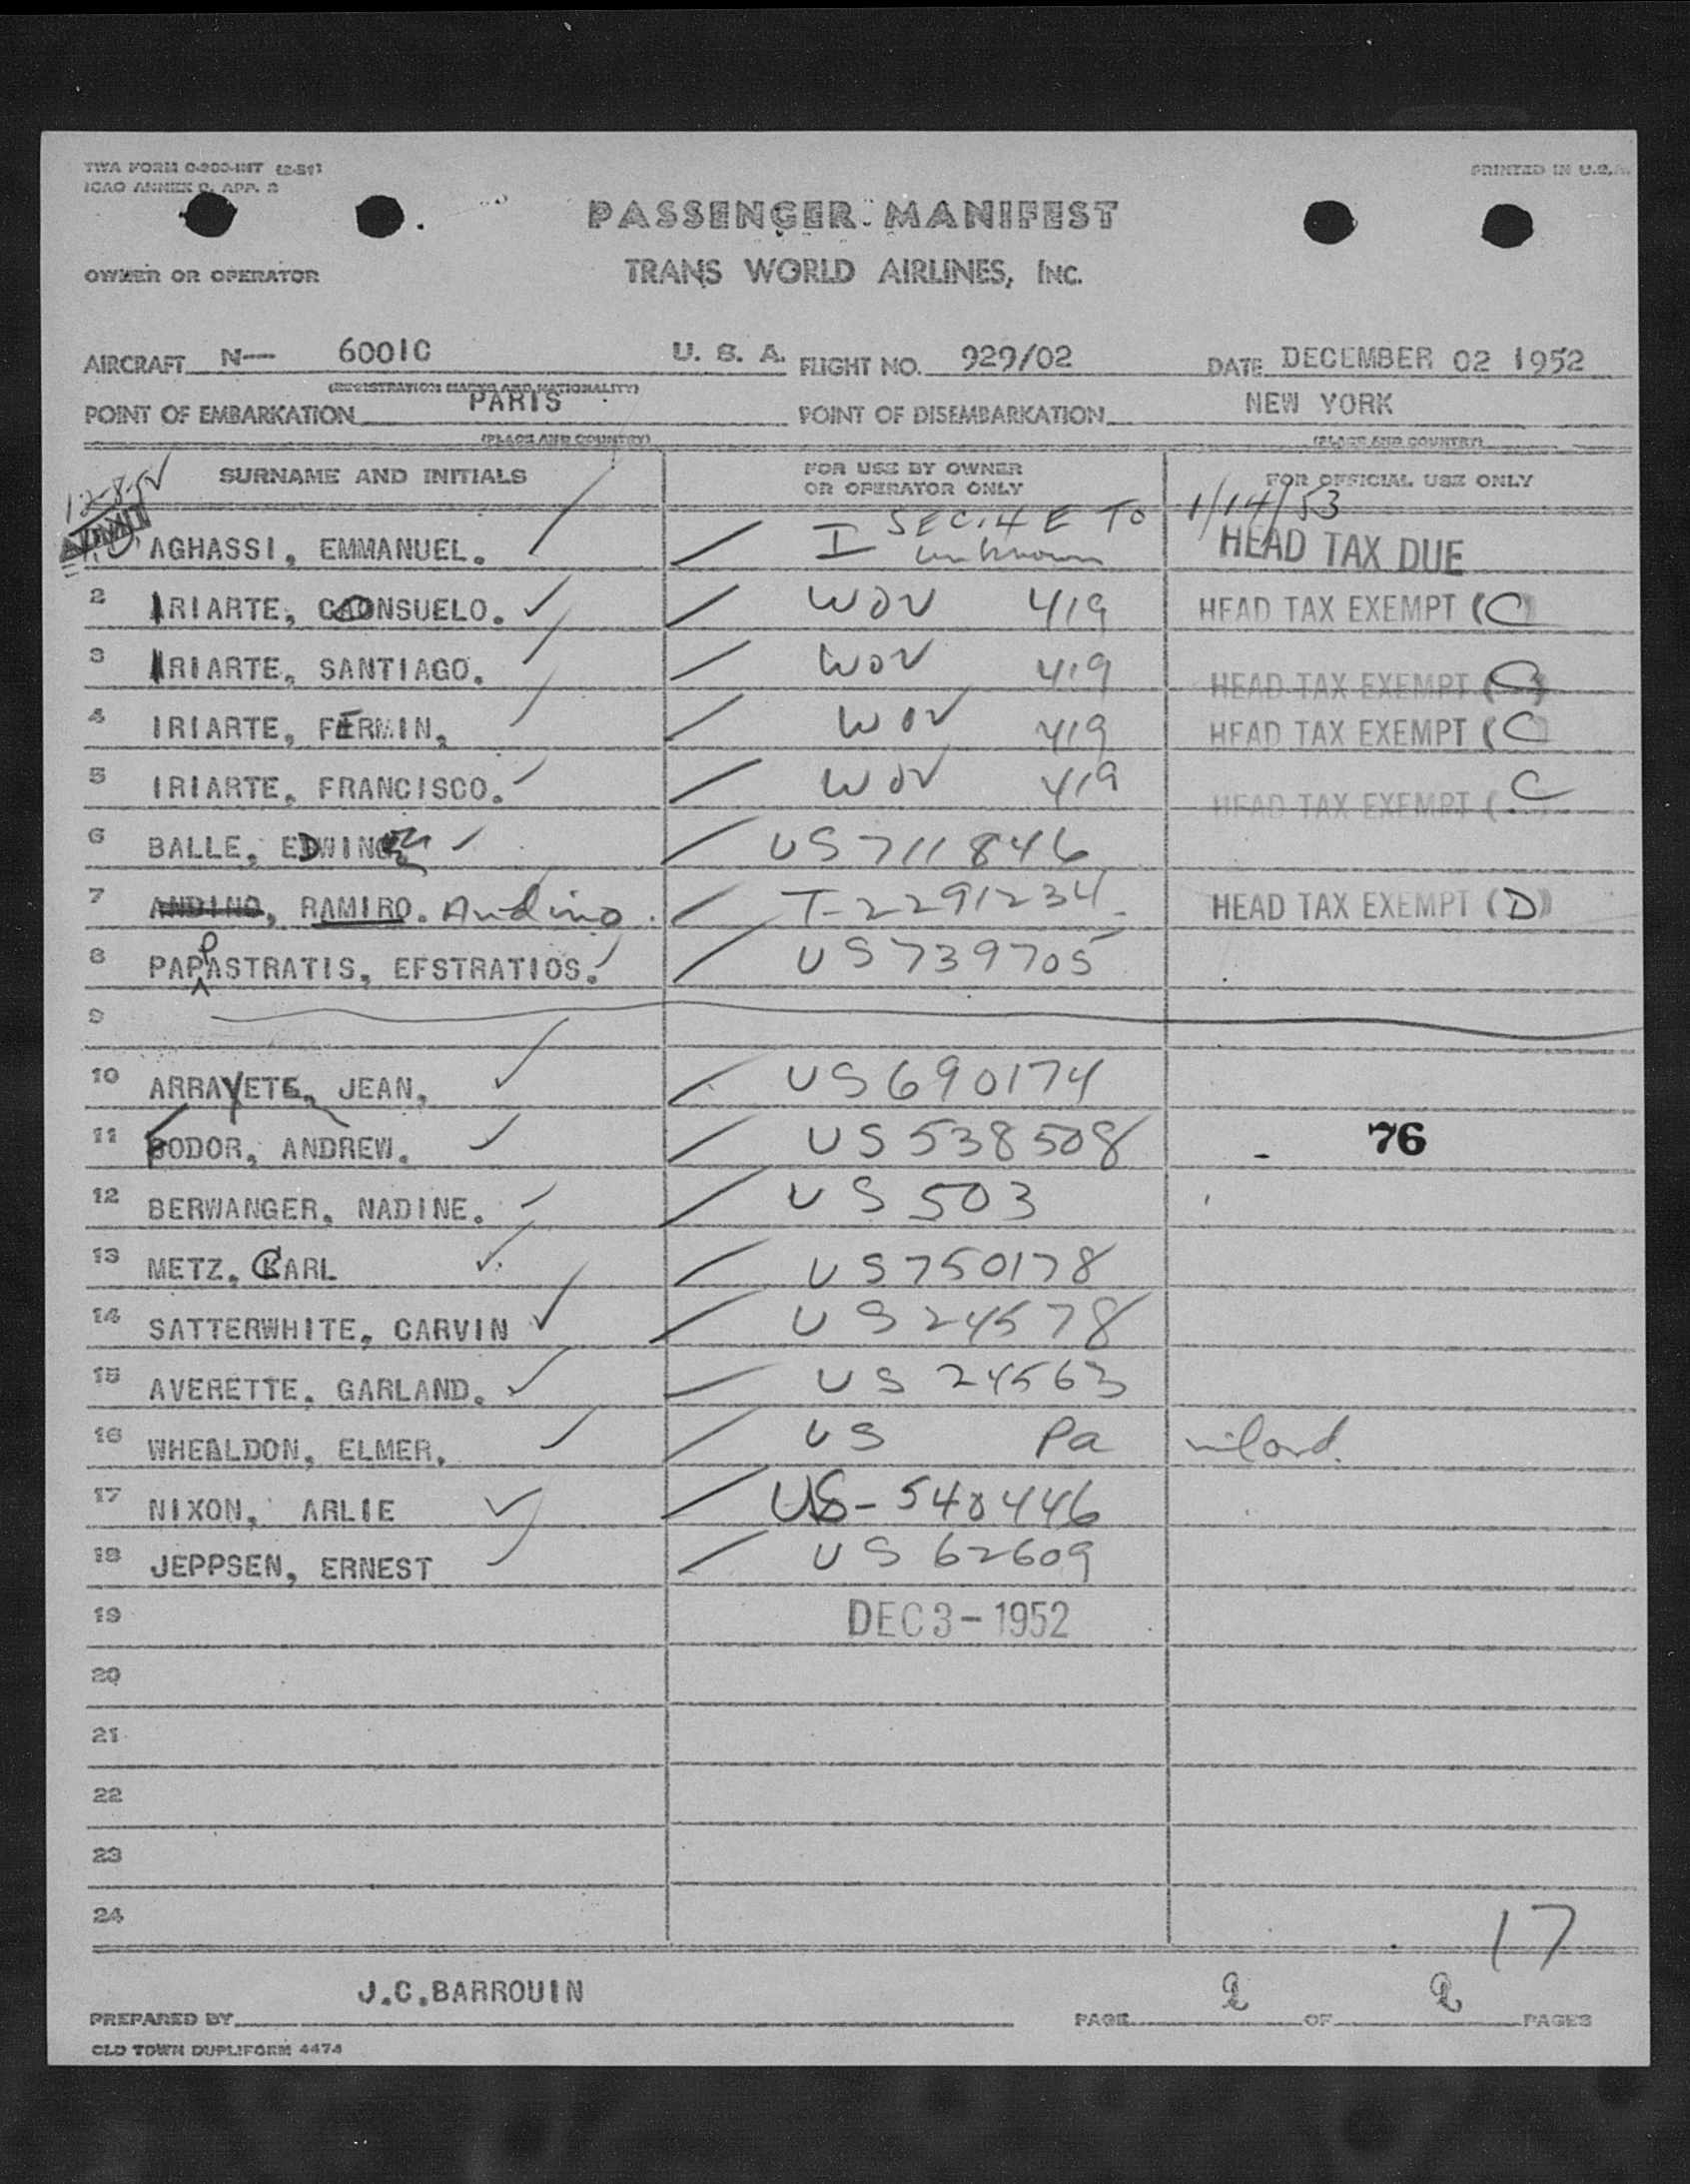 TWA FORM 0-200-INT (2-51)
ICAO ANNEX 9, APP. 2
PRINTED IN U.S.A.
PASSENGER MANIFEST
OWNER OR OPERATOR TRANS WORLD AIRLINES, INC.
AIRCRAFT N— 6001C U. S. A. FLIGHT NO. 929/02 DATE DECEMBER 02 1952
(REGISTRATION MARKS AND NATIONALITY)
POINT OF EMBARKATION PARIS POINT OF DISEMBARKATION NEW YORK
(PLACE AND COUNTRY) (PLACE AND COUNTRY)
SURNAME AND INITIALS FOR USE BY OWNER OR OPERATOR ONLY FOR OFFICIAL USE ONLY
12-8-52 1/14/53
AGHASSI, EMMANUEL. I SEC.4 E TO unknown HEAD TAX DUE
2 IRIARTE, CONSUELO. WOV 419 HEAD TAX EXEMPT (C)
3 IRIARTE, SANTIAGO. WOV 419 HEAD TAX EXEMPT (C)
4 IRIARTE, FERMIN, WOV 419 HEAD TAX EXEMPT (C)
5 IRIARTE, FRANCISCO. WOV 419 HEAD TAX EXEMPT (C
6 BALLE, EDWIN US 711846
7 ANDINO, RAMIRO. Andino. T-2291234 HEAD TAX EXEMPT (D)
8 PAPPASTRATIS, EFSTRATIOS. US 739705
9
10 ARRAYETE, JEAN, US 690174
11 FODOR, ANDREW. US 538508 76
12 BERWANGER, NADINE. US 503
13 METZ, CARL US 750178
14 SATTERWHITE, CARVIN US 24578
15 AVERETTE, GARLAND. US 24563
16 WHEALDON, ELMER, US Pa
17 NIXON, ARLIE US-540446
18 JEPPSEN, ERNEST US 62609
19 DEC 3-1952
20
21
22
23
24
17
PREPARED BY J.C.BARROUIN PAGE 2 OF 2 PAGES
OLD TOWN DUPLIFORM 4474